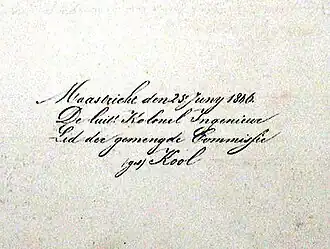 Maastricht den 25 Juny 1846.
De luitt Kolonel Ingenieur
Lid der gemengde Commissie
(get) Kool